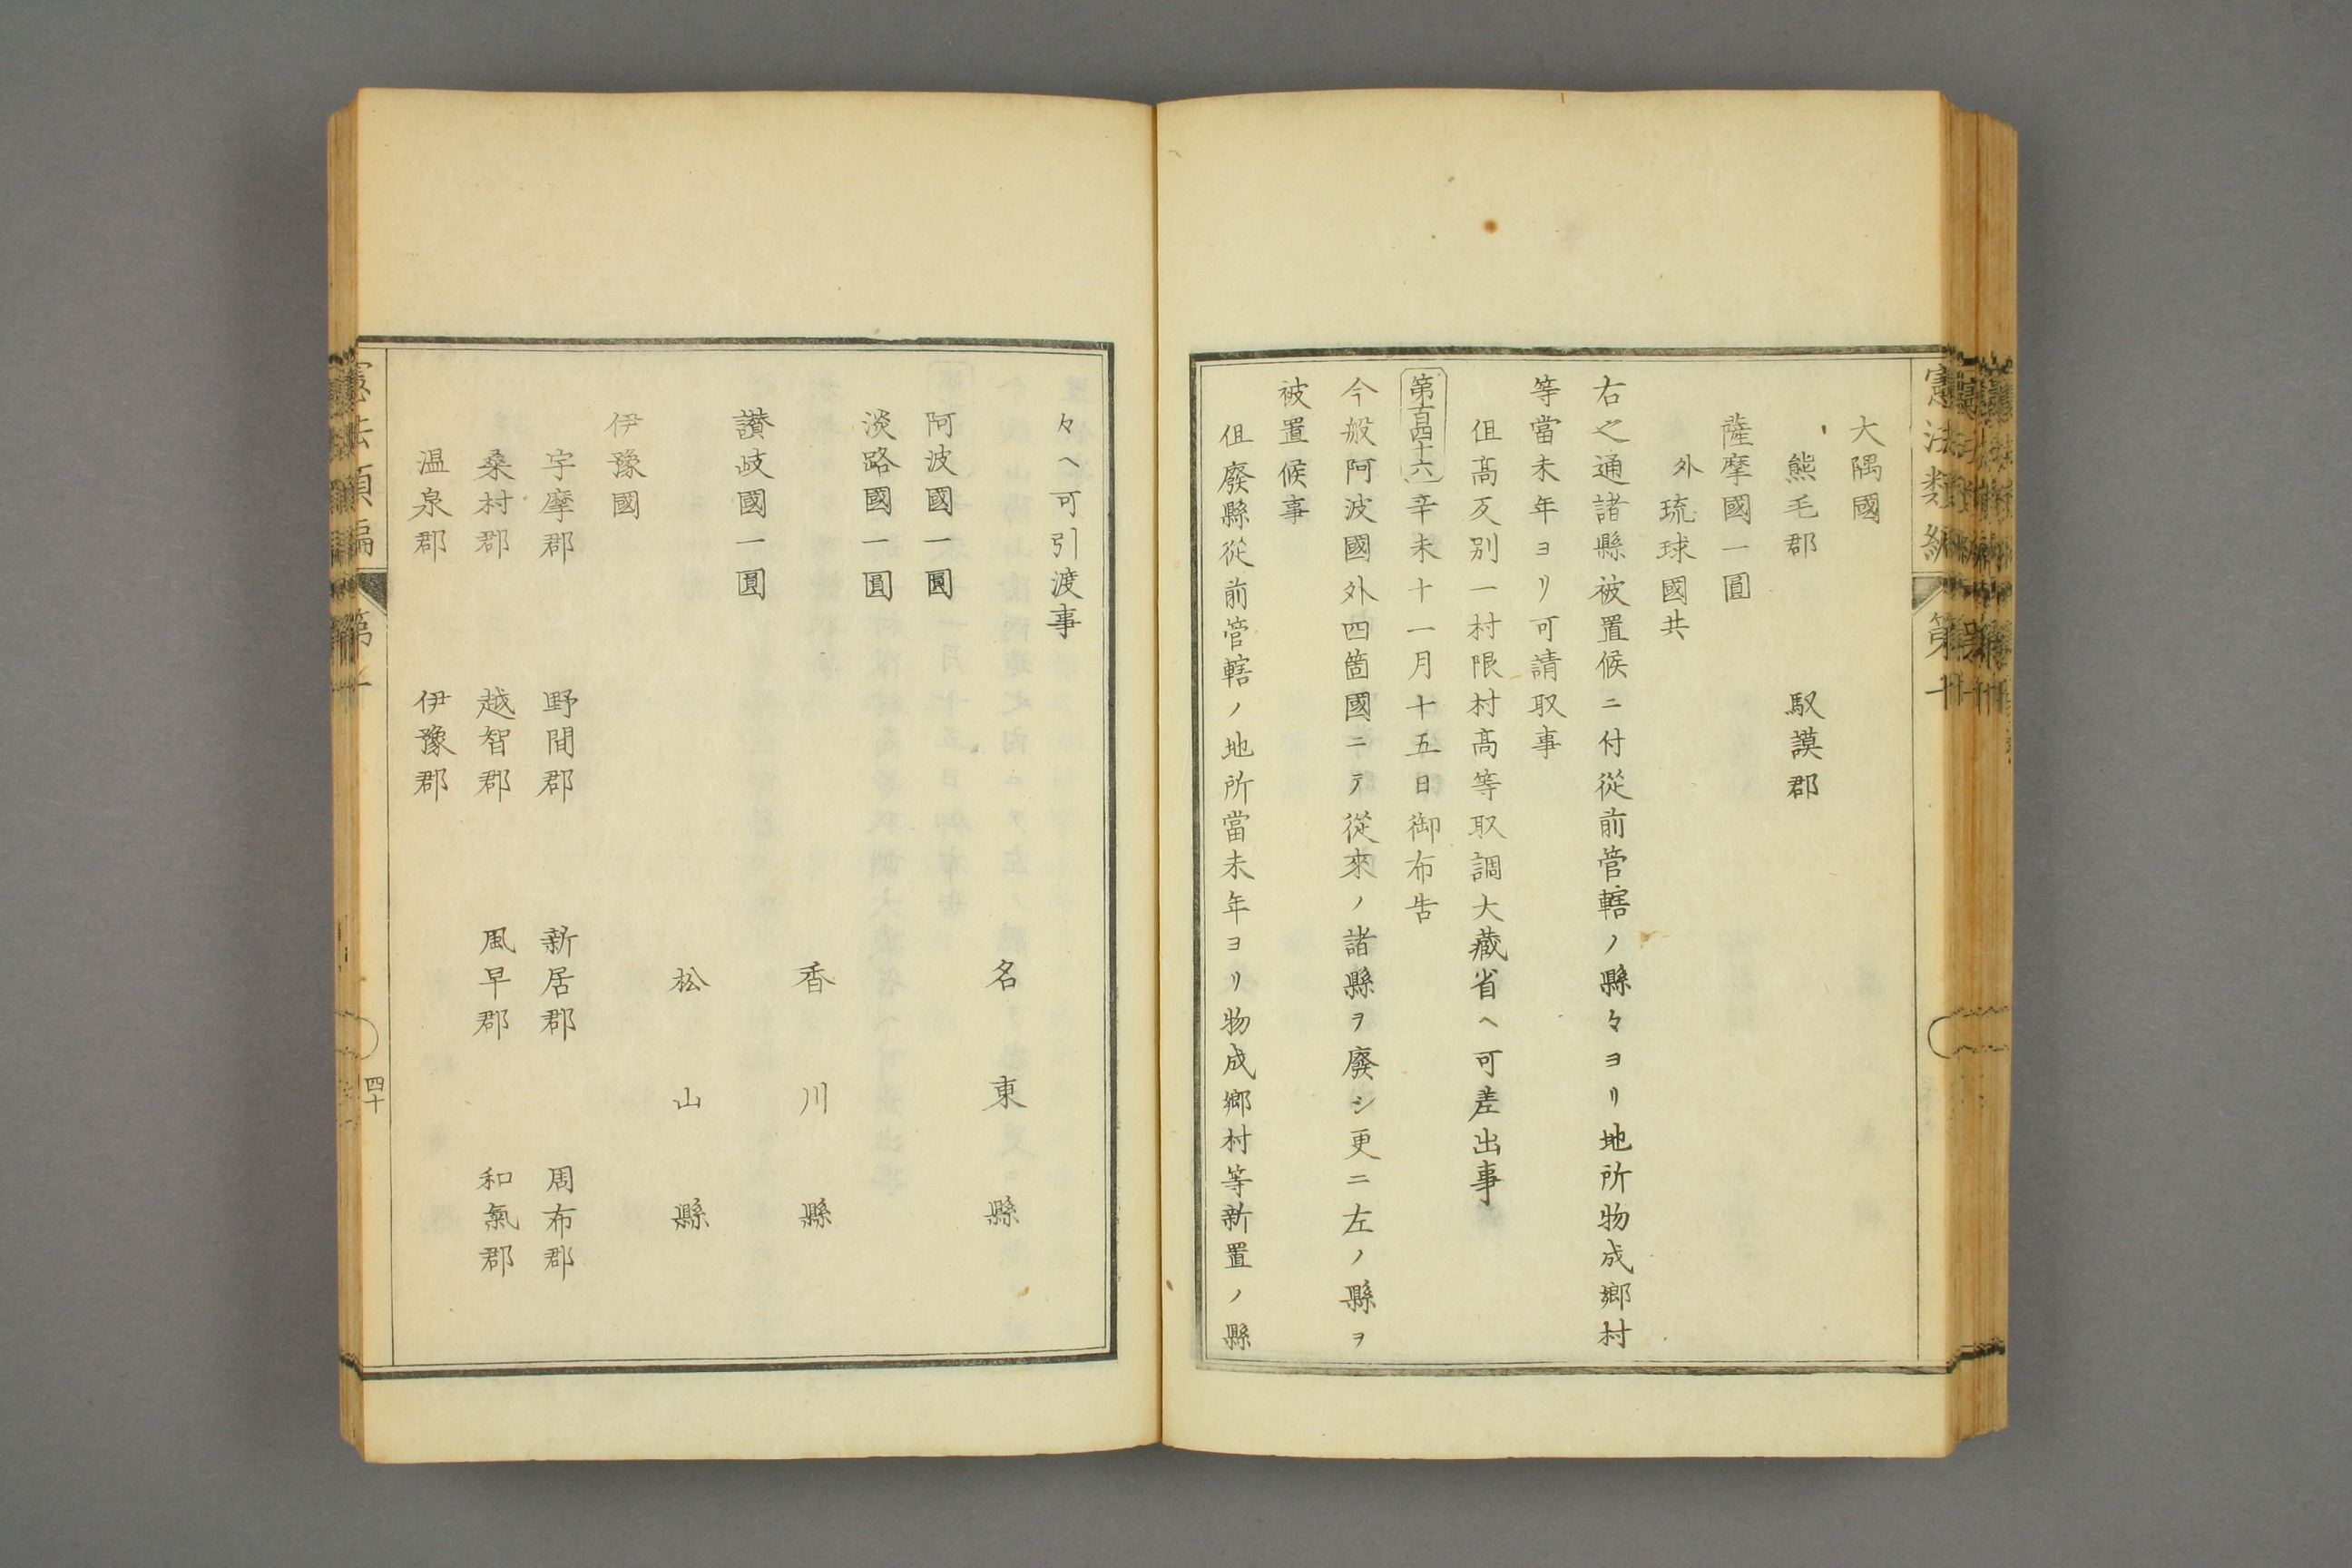 大隅國
熊毛郡　馭謨郡
薩摩國一圓
外琉球國共
右之通諸縣被置候ニ付從前管轄ノ縣々ヨリ地所物成鄉村
等當未年ヨリ可請取事
但高反别一村限村高等取調大藏省ヘ可差出事
第百四十六 辛未十一月十五日御布告
今般阿波國外四箇國ニテ從來ノ諸縣ヲ廢シ更ニ左ノ縣ヲ
被置候事
但廢縣從前管轄ノ地所當未年ヨリ物成鄉村等新置ノ縣
々ヘ可引渡事
名東縣
阿波國一圓
淡路國一圓
香川縣
讃岐國一圓
松山縣
伊豫國
宇摩郡　野間郡　新居郡　周布郡
桑村郡　越智郡　風早郡　和氣郡
温泉郡　伊豫郡
憲法類編　第十
四十